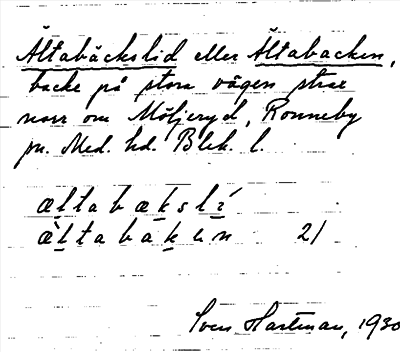 Ältabäckslid eller Ältabacken,
backe på stora vägen strax
norr om Möljeryd, Ronneby
sn. Med. hd. Blek. l.
æltabækslí
æ̀ltabàken 21
Sven Hartman, 1930